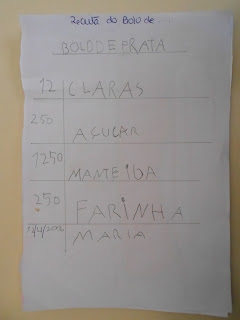 Receita do Bolo de...
BOLO DE PRATA
12 CLARAS
250 AÇUCAR
1250 MANTEIGA
250 FARINHA
MARIA